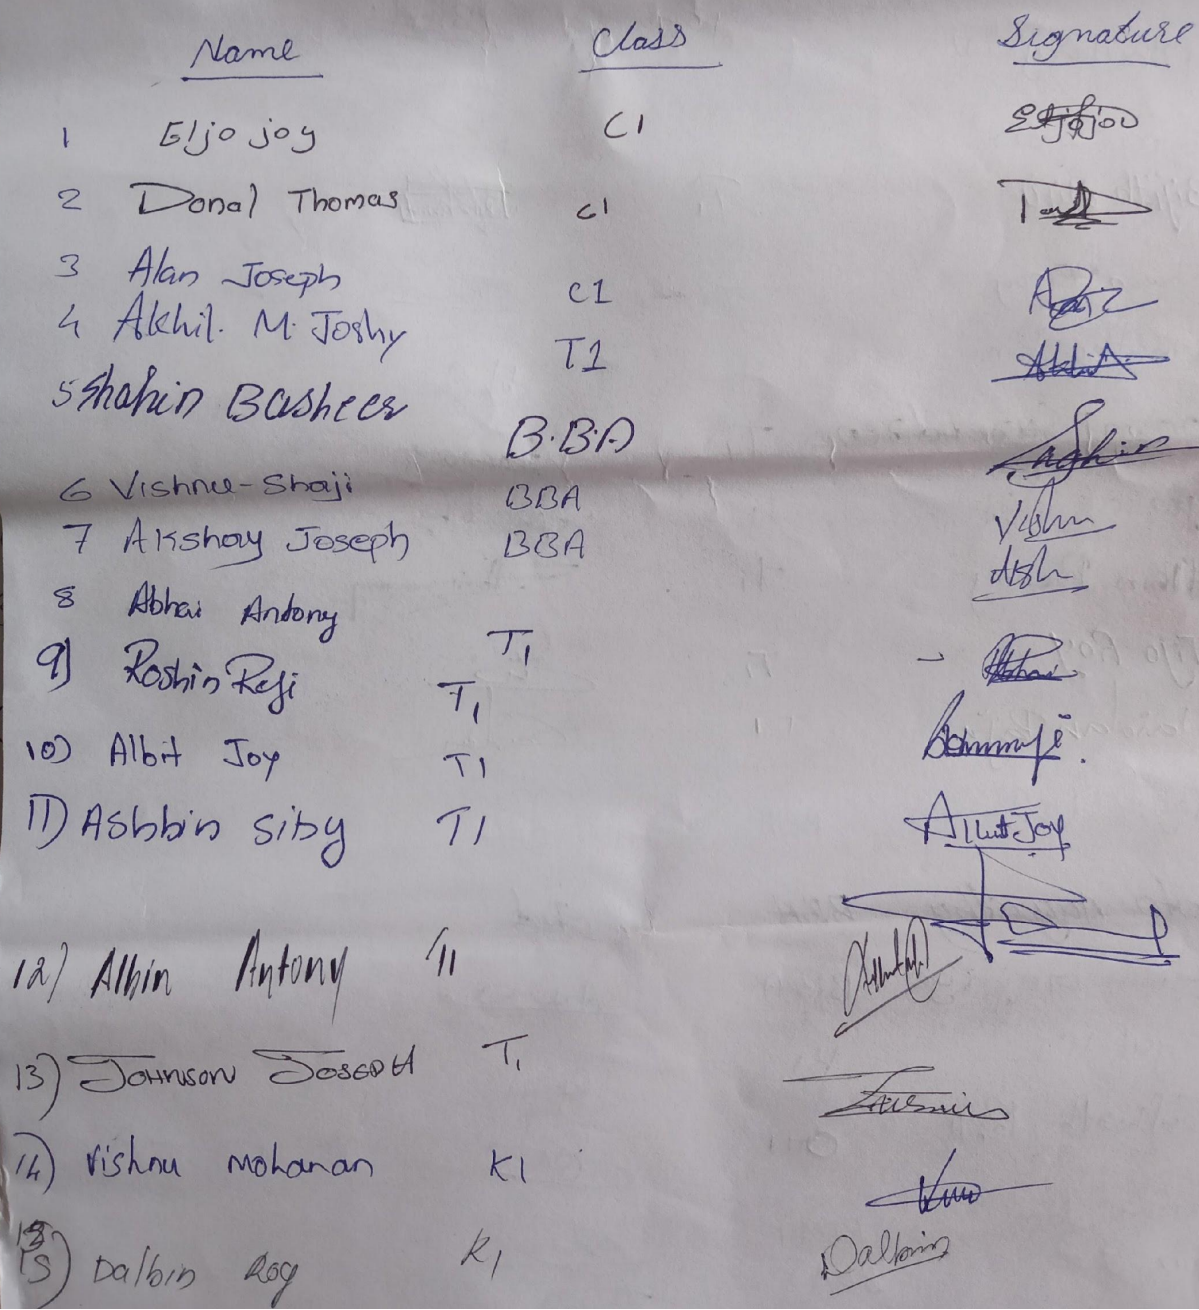 Name Class Signature
1 Eljo joy C1
2 Donal Thomas C1
3 Alan Joseph C1
4 Akhil. M. Joshy T1 Akhil
5 Shahin Basheer B.B.A Shahin
6 Vishnu-Shaji BBA Vishnu
7 Akshay Joseph BBA
8 Abhai Antony T1 Abhai
9) Roshin Reji T1
10) Albit Joy T1 Albit Joy
11) Ashbin siby T1
12) Albin Antony T1
13) Johnson Joseph T1
14) Vishnu Mohanan K1
15) Dalbin Roy K1 Dalbin